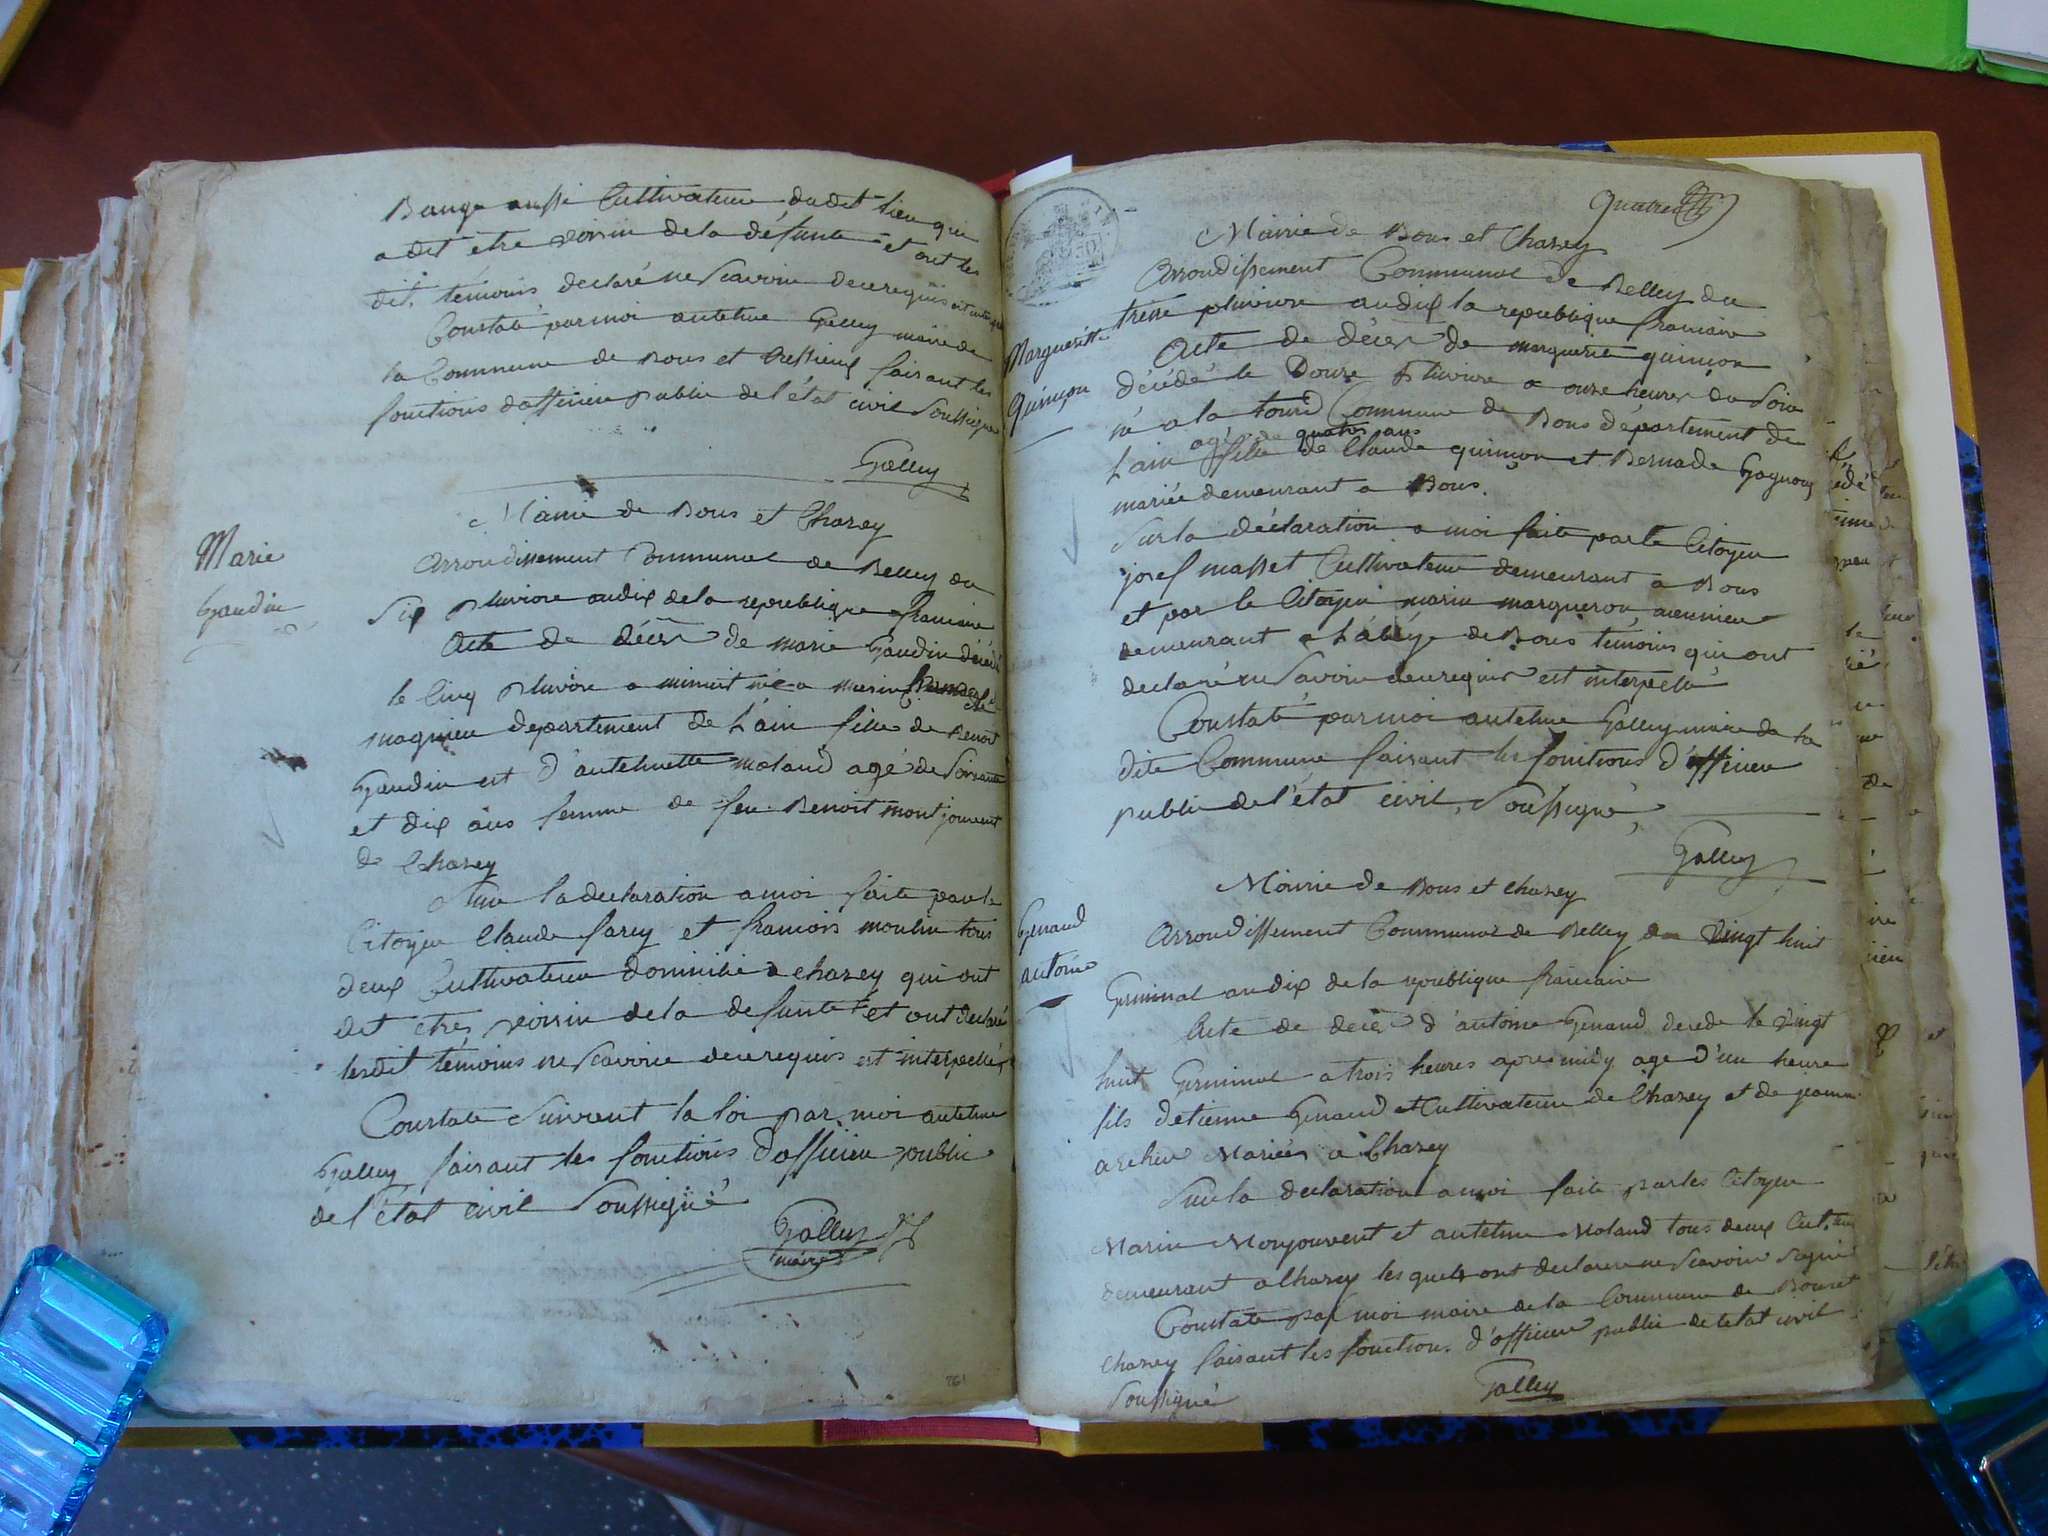 Bauge aussi Cultivateur dudit lieu qui
a dit etre voisin de la défunte et ont les
dit témoins declaré ne scavoir de ce requis
Constaté par moi antelme Galley maire de
la Commune de Bons et faisant les
fonctions dofficier public de l'état civil Soussigné
Galley
Marie
Gaudin
Mairie de Bons et Chazey
Arrondissement Communal de Belley du
Six pluviose an dix de la republique francaise
Acte de décès de marie Gaudin décédé
le Cinq pluviose a minuit née a
magnieu departement de L'ain fille de Benoit
Gaudin et d'antelmette moland agé de Soixante
et dix ans femme de feu Benoit montjouvent
de Chazey
Sur la declaration a moi faite par le
Citoyen Claude farcy et francois moulin tous
deux Cultivateur domicilié a chazey qui ont
dit etre voisin de la defunte et ont declaré
lesdit temoins ne scavoir de ce requis est interpellés
Constate Suivent la loi par moi antelme
Galley faisant les fonctions d'officier public
de l'etat civil Soussigné
Galley
maire
261
quatre
Mairie de Bons et Chazey
Arrondissement Communal de Belley du
treise pluviose an dix la republique francaise
Marguerite
Quinçon
Acte de décès de marguerite quinçon
décédé le Douze pluviose a onze heures du Soir
né a la Commune de Bons département de
agé de quatre ans
L'ain fille de Claude quinçon et Bernade Gagnoux
mariée demeurant a Bons.
Sur la déclaration a moi faite par le Citoyen
josef masset Cultivateur demeurant a Bons
et par le Citoyen marin margueron meunier
demeurant a Labeye de Bons témoins qui ont
declaré ne Savoir de ce requis est interpellé
Constaté par moi antelme Galley maire de la
dite Commune faisant les fonctions d'officier
public de l'état civil, Soussigné,
Galley
Genaud
antoine
Mairie de Bons et chazey
Arrondissement Communal de Belley du Vingt huit
Germinal an dix de la republique francaise
Acte de décès d'antoine Genaud décédé le vingt
huit Germinal a trois heures apres midy age d'un heure
fils detienne Genaud et Cultivateur de Chazey et de jeanne
Mariés à Chazey
Sur la declaration a moi faite par les Citoyen
Marin Monjouvent et antelme Moland tous deux
demeurant a Chazey les quels ont declarer ne Scavoir Signé
Constate par moi maire de la Commune de Bons et
chazey faisant les fonction. d'officier public de letat civil
Soussigné
Galley